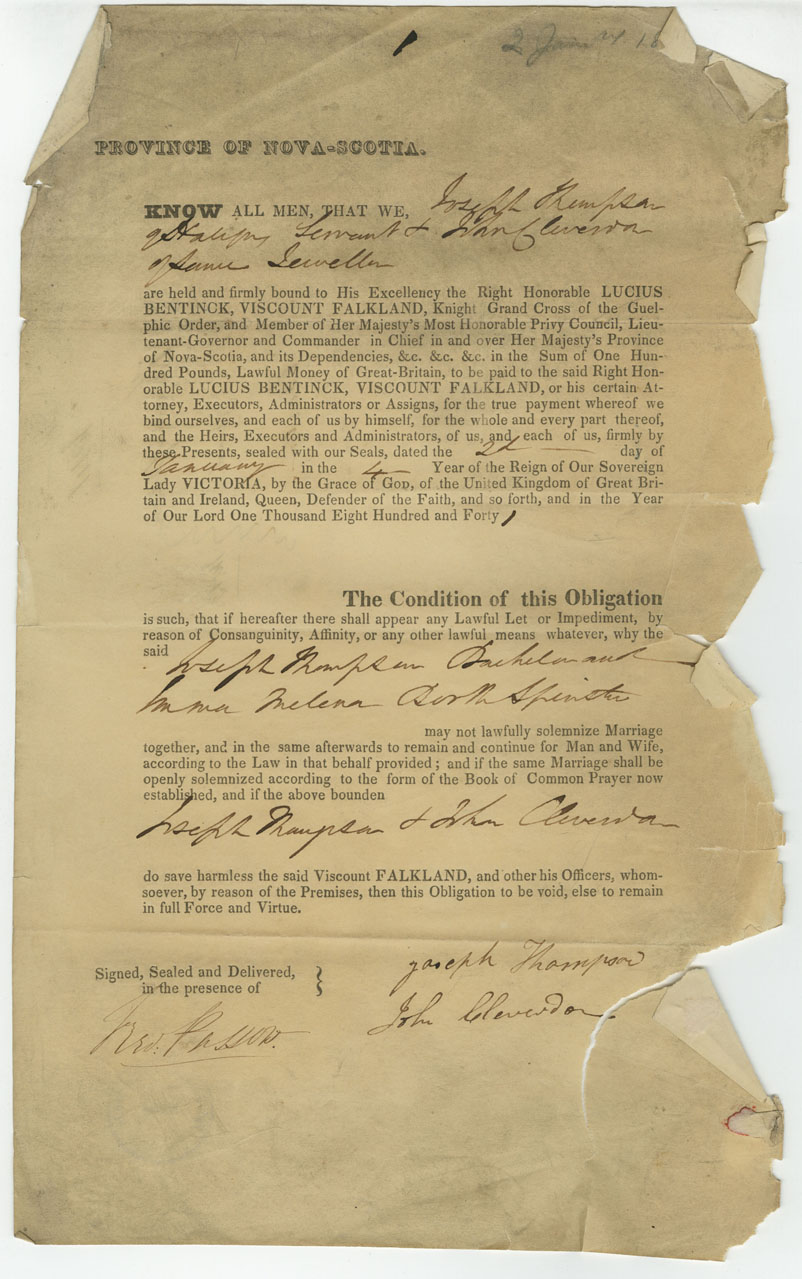 2 Jany 18
1
PROVINCE OF NOVA-SCOTIA.
KNOW ALL MEN, THAT WE, Joseph Thompson
of Halifax Servant & John Cleverdon
of same Jeweller
are held and firmly bound to His Excellency the Right Honorable LUCIUS
BENTINCK, VISCOUNT FALKLAND, Knight Grand Cross of the Guel-
phic Order, and Member of Her Majesty's Most Honorable Privy Council, Lieu-
tenant-Governor and Commander in Chief in and over Her Majesty's Province
of Nova-Scotia, and its Dependencies, &c. &c. &c. in the Sum of One Hun-
dred Pounds, Lawful Money of Great-Britain, to be paid to the said Right Hon-
orable LUCIUS BENTINCK, VISCOUNT FALKLAND, or his certain At-
torney, Executors, Administrators or Assigns, for the true payment whereof we
bind ourselves, and each of us by himself, for the whole and every part thereof,
and the Heirs, Executors and Administrators, of us, and each of us, firmly by
these Presents, sealed with our Seals, dated the 2d day of
January in the 4 Year of the Reign of Our Sovereign
Lady VICTORIA, by the Grace of GOD, of the United Kingdom of Great Bri-
tain and Ireland, Queen, Defender of the Faith, and so forth, and in the Year
of Our Lord One Thousand Eight Hundred and Forty 1
The Condition of this Obligation
is such, that if hereafter there shall appear any Lawful Let or Impediment, by
reason of Consanguinity, Affinity, or any other lawful means whatever, why the
said Joseph Thompson Bachelor and
Emma Melena Spinster
may not lawfully solemnize Marriage
together, and in the same afterwards to remain and continue for Man and Wife,
according to the Law in that behalf provided; and if the same Marriage shall be
openly solemnized according to the form of the Book of Common Prayer now
established, and if the above bounden
Joseph Thompson & John Cleverdon
do save harmless the said Viscount FALKLAND, and other his Officers, whom-
soever, by reason of the Premises, then this Obligation to be void, else to remain
in full Force and Virtue.
Signed, Sealed and Delivered,
in the presence of
Joseph Thompson
John Cleverdon
Passow.